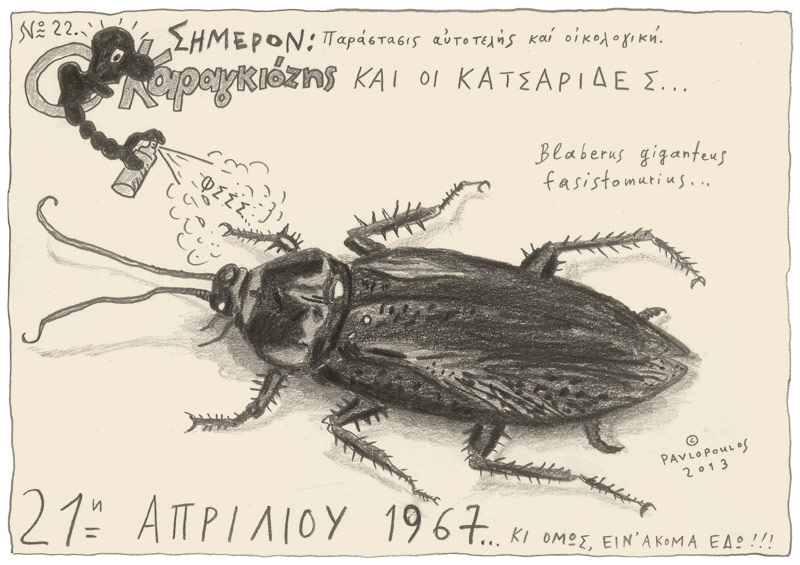 № 22.
ΣΗΜΕΡΟΝ: Παράστασις αὐτοτελής καί οἰκολογική.
Ο Καραγκιόζης ΚΑΙ ΟΙ ΚΑΤΣΑΡΙΔΕΣ...
Blaberus giganteus
fasistomurius...
ΦΣΣΣ..
© PAVLOPOULOS
2013
21η ΑΠΡΙΛΙΟΥ 1967... ΚΙ ΟΜΩΣ, ΕΙΝ' ΑΚΟΜΑ ΕΔΩ!!!